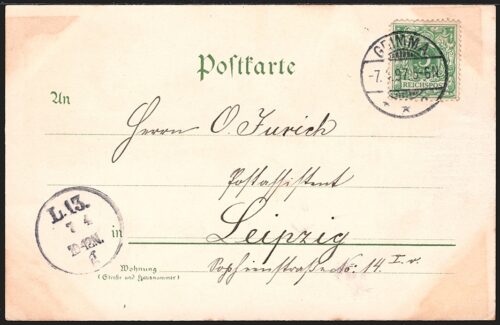 GRIMMA
-7.4.97.5-6N.
* *
5
REICHSPOST
Postkarte
An
Herrn O. Jurich
Postassistent
in Leipzig
Sophienstraße No: 14 I. r.
Wohnung
(Straße und Hausnummer)
L.13.
7 4
N.